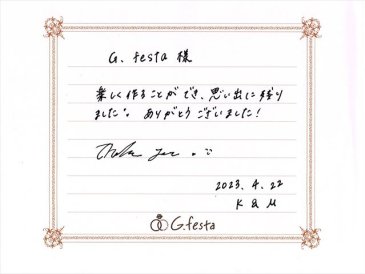 G. festa 様
楽しく作ることができ、思い出に残り
ました。ありがとうございました！
Thank you
2023. 4. 22
K & M
G.festa